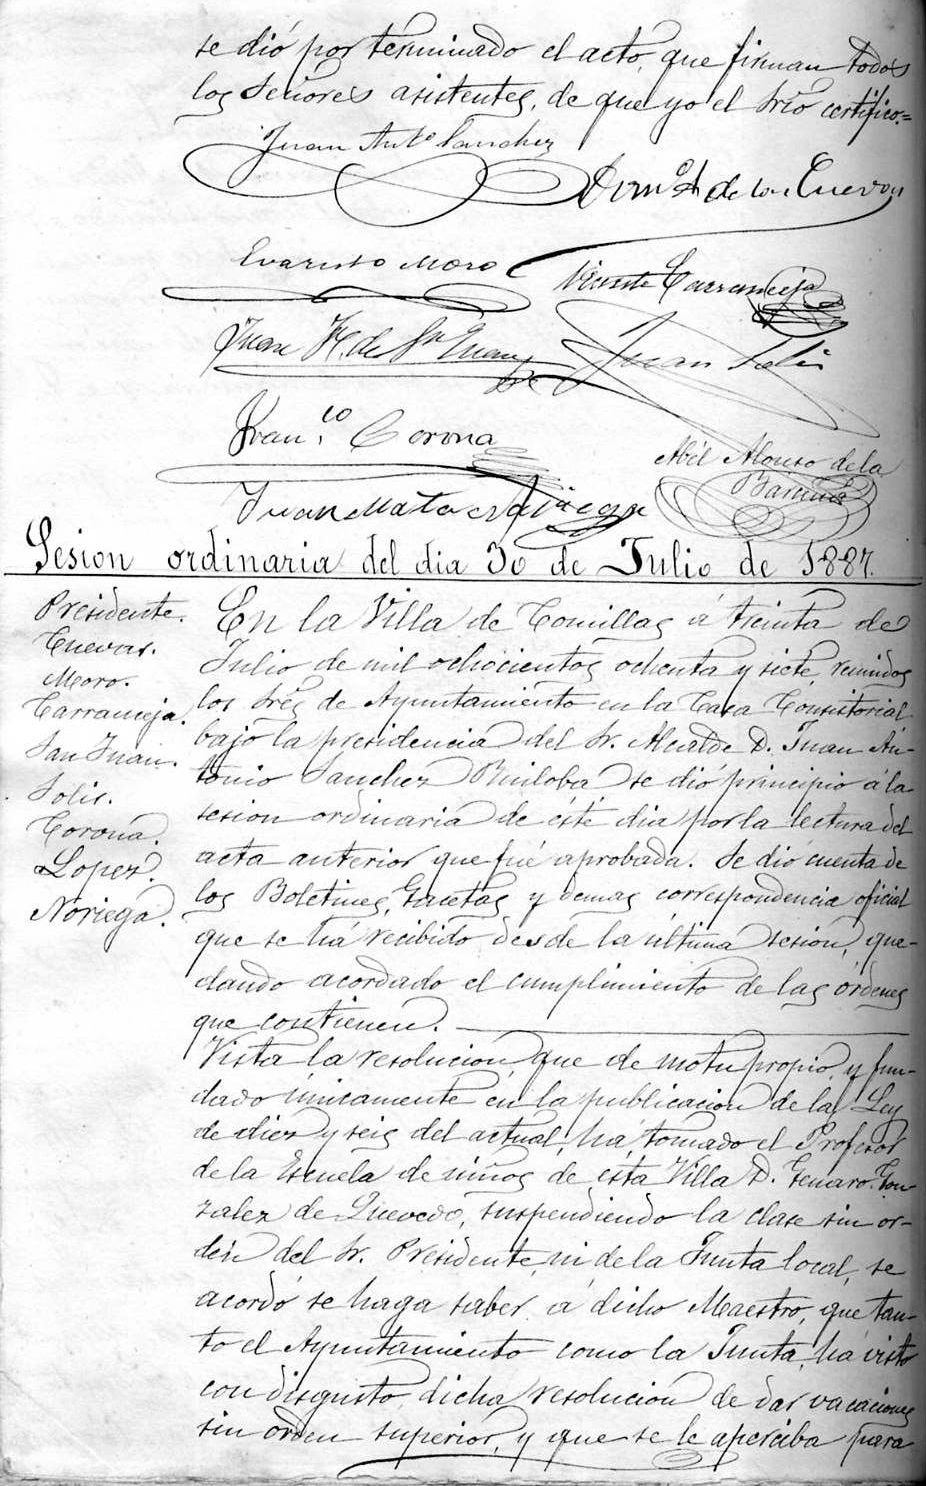 se dió por terminado el acto, que firman todos
los Señores asistentes, de que yo el Srio certifico.=
Juan Antº Sanchez
de las Cuevas
Evaristo Moro
Vicente Carranceja
Juan H. de Sn Juan
Juan Solis
Franco Corona
Abél Alonso de la
Barcena
Juan Mata
Noriega
Sesion ordinaria del dia 30 de Julio de 1887.
Presidente.
Cuevas.
Moro.
Carranceja.
San Juan.
Solis.
Corona.
Lopez.
Noriega.
En la Villa de Comillas á treinta de
Julio de mil ochocientos ochenta y siete, reunidos
los Srés de Ayuntamiento en la Casa Consistorial
bajo la presidencia del Sr. Alcalde D. Juan An-
tonio Sanchez Ruiloba se dió principio á la
sesion ordinaria de éste dia por la lectura del
acta anterior que fué aprobada. Se dió cuenta de
los Boletines, Gacetas y demas correspondencia oficial
que se há recibido desde la última sesión, que-
dando acordado el cumplimiento de las órdenes
que contienen.
Vista la resolucion, que de motu propio, y fun-
dado únicamente en la publicacion de la Ley
de diez y seis del actual, há tomado el Profesor
de la Escuela de niños de esta Villa D. Genaro Gon-
zalez de Quevedo, suspendiendo la clase sin or-
den del Sr. Presidente, ni de la Junta local, se
acordó se haga saber á dicho Maestro, que tan-
to el Ayuntamiento como la Junta, há visto
con disgusto dicha resolucion de dar vacaciones
sin orden superior, y que se le aperciba para